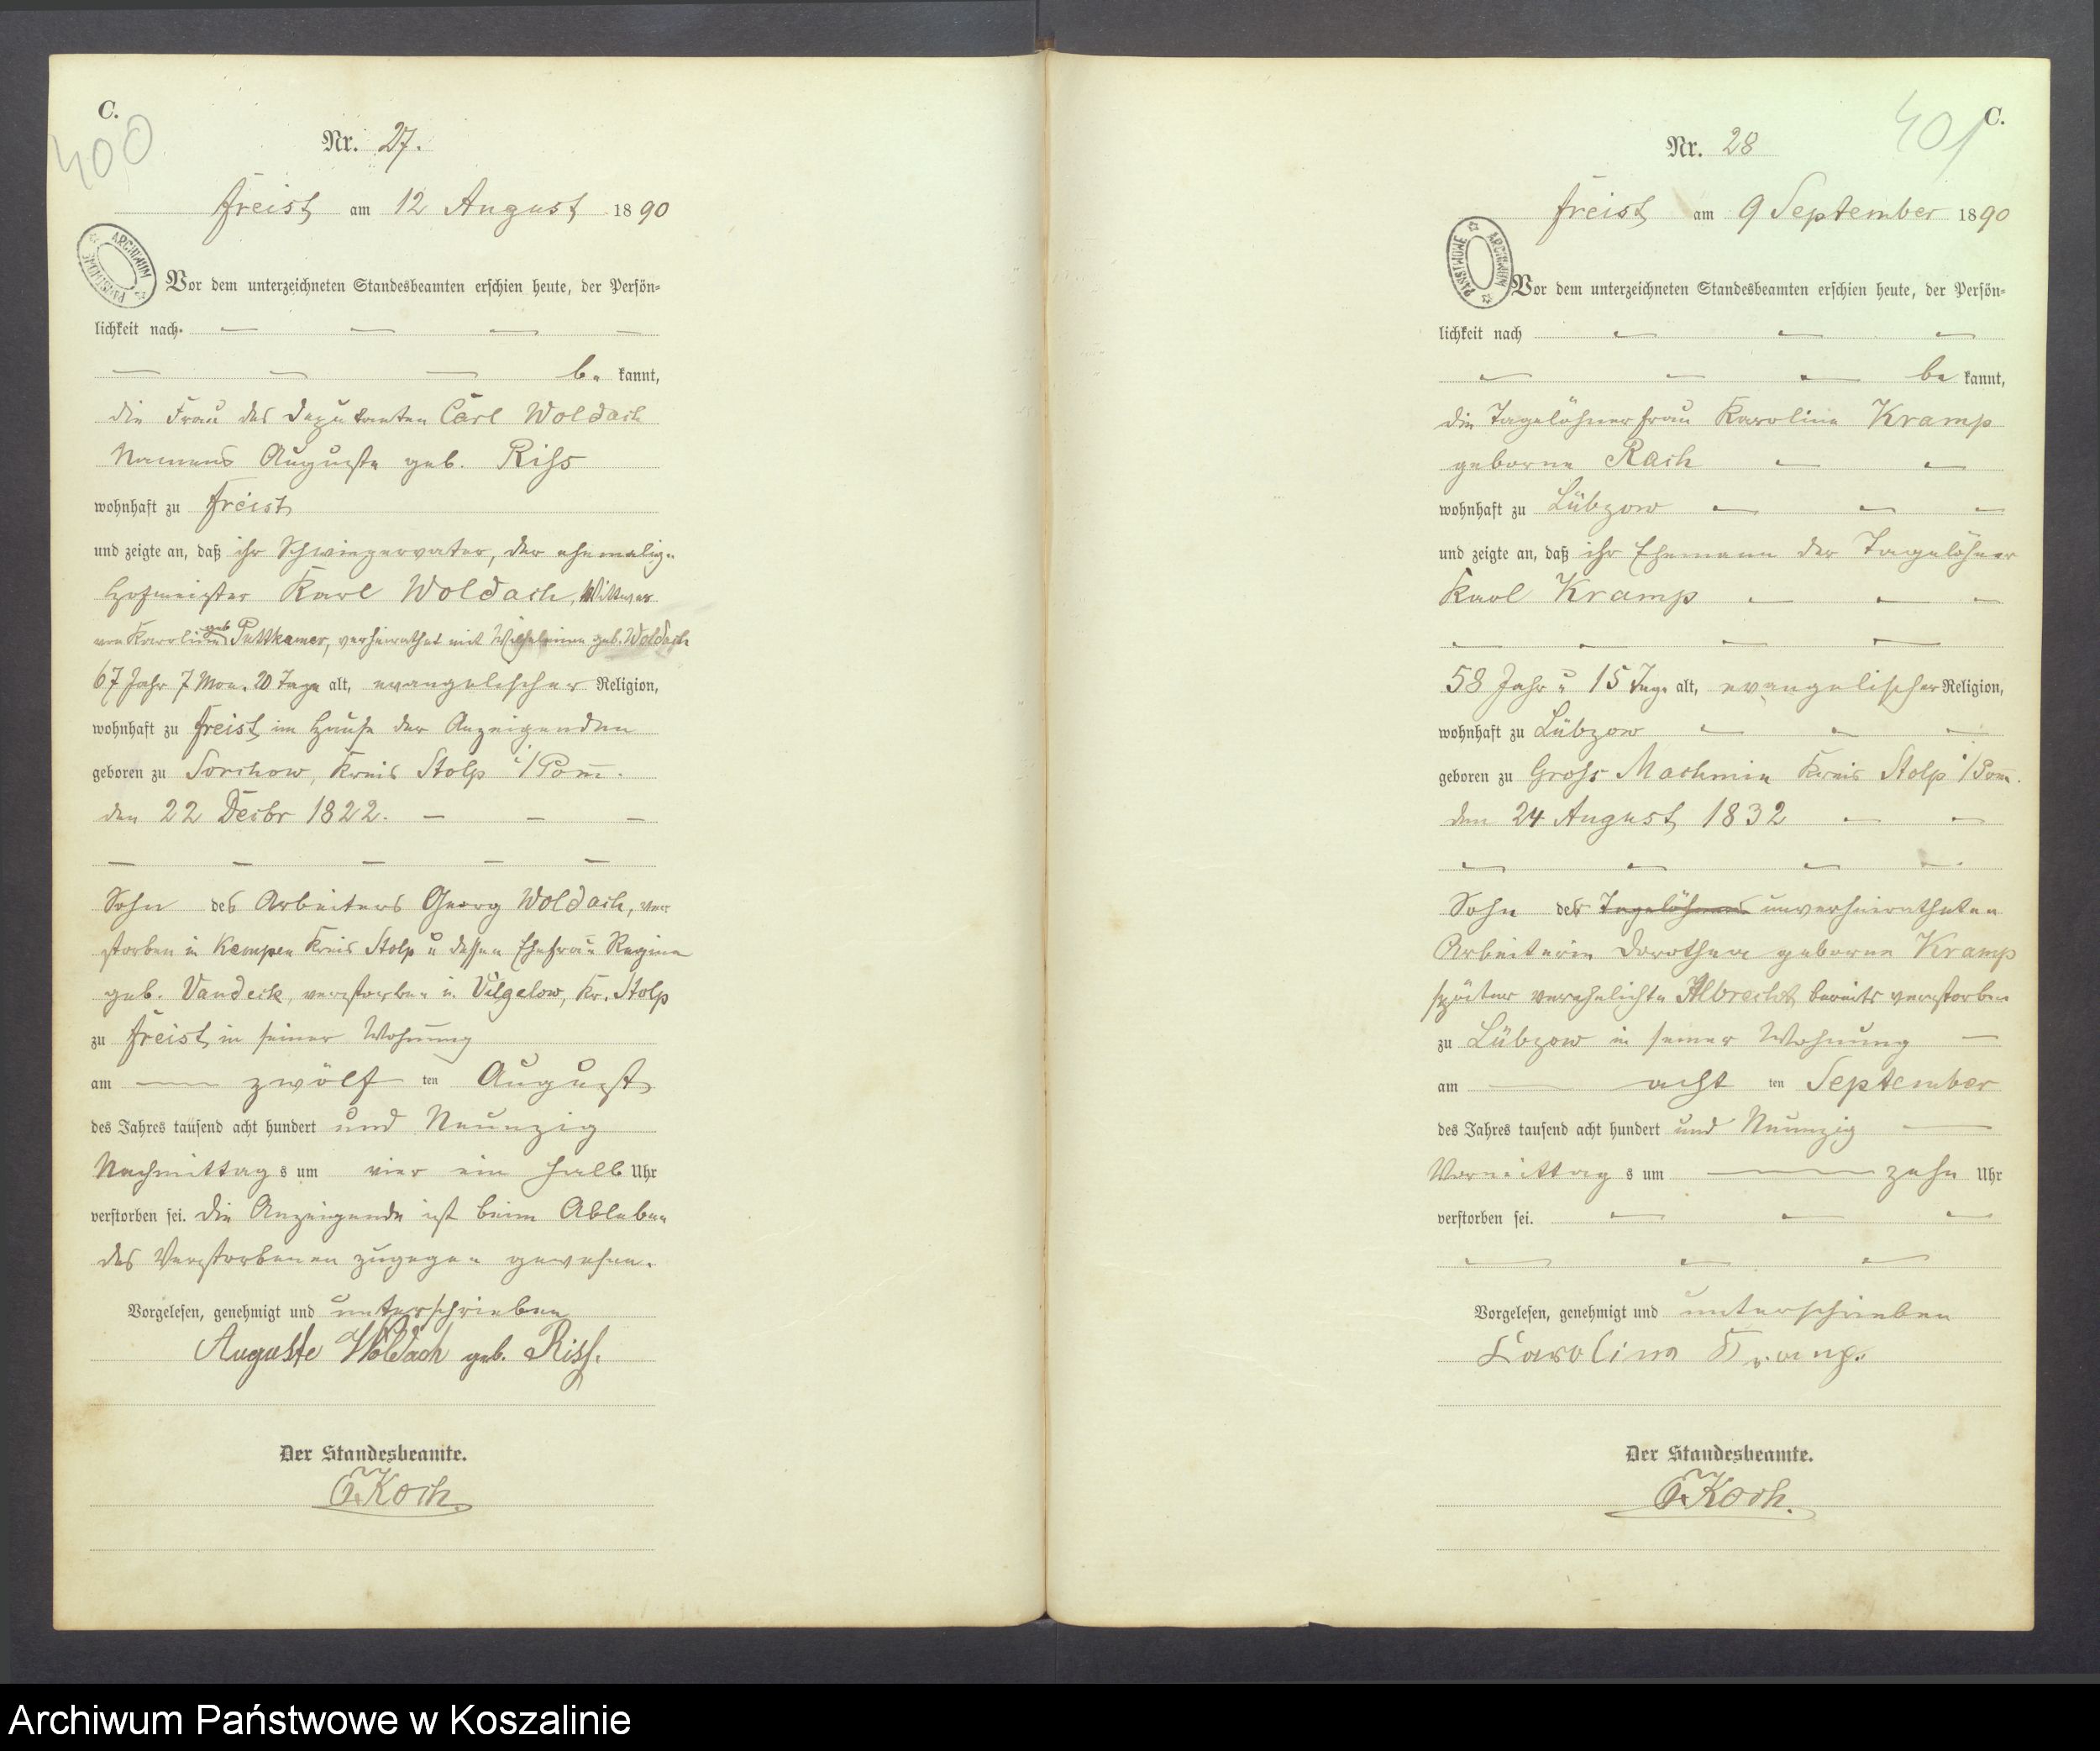 C.
400
Nr. 27.
Freist am 12 August 1890
ARCHIWUM PAŃSTWOWE
Vor dem unterzeichneten Standesbeamten erschien heute, der Persön-
lichkeit nach
be kannt,
die Frau des Deputanten Carl Woldach
Namens Auguste geb. Riss
wohnhaft zu Freist
und zeigte an, daß ihr Schwiegervater, der ehemalige
Hofmeister Karl Woldach, Wittwer
von Karoline geb Puttkamer, verheirathet mit Wilhelmine geb. Woldach
67 Jahr 7 Mon. 20 Tage alt, evangelischer Religion,
wohnhaft zu Freist im Hause der Anzeigenden
geboren zu Sorchow, Kreis Stolp i/Pom.
den 22 Decbr 1822. — — —
— — — — —
Sohn des Arbeiters Georg Woldach, ver
storben in Kempen Kreis Stolp u dessen Ehefrau Regine
geb. Vandeck, verstorben in Vilgelow, Kr. Stolp
zu Freist in seiner Wohnung
am — zwölf ten August
des Jahres tausend acht hundert und Neunzig
Nachmittag s um vier ein halb Uhr
verstorben sei. Die Anzeigende ist beim Ableben
des Verstorbenen zugegen gewesen.
Vorgelesen, genehmigt und unterschrieben
Auguste Woldach geb. Riss.
Der Standesbeamte.
Koch
C.
401
Nr. 28
Freist am 9 September 1890
PAŃSTWOWE ARCHIWUM
Vor dem unterzeichneten Standesbeamten erschien heute, der Persön-
lichkeit nach
be kannt,
die Tagelöhnerfrau Karoline Kramp
geborne Rach
wohnhaft zu Lübzow
und zeigte an, daß ihr Ehemann der Tagelöhner
Karl Kramp
58 Jahr u 15 Tage alt, evangelischer Religion,
wohnhaft zu Lübzow
geboren zu Gross Machmin Kreis Stolp i/Pom.
den 24 August 1832
Sohn der Tagelöhners unverheiratheten
Arbeiterin Dorothea geborne Kramp
später verehelichte Albrecht bereits verstorben
zu Lübzow in seiner Wohnung —
am — acht ten September
des Jahres tausend acht hundert und Neunzig —
Vormittag s um — zehn Uhr
verstorben sei.
Vorgelesen, genehmigt und unterschrieben
Carolina Kramp.
Der Standesbeamte.
Koch.
Archiwum Państwowe w Koszalinie